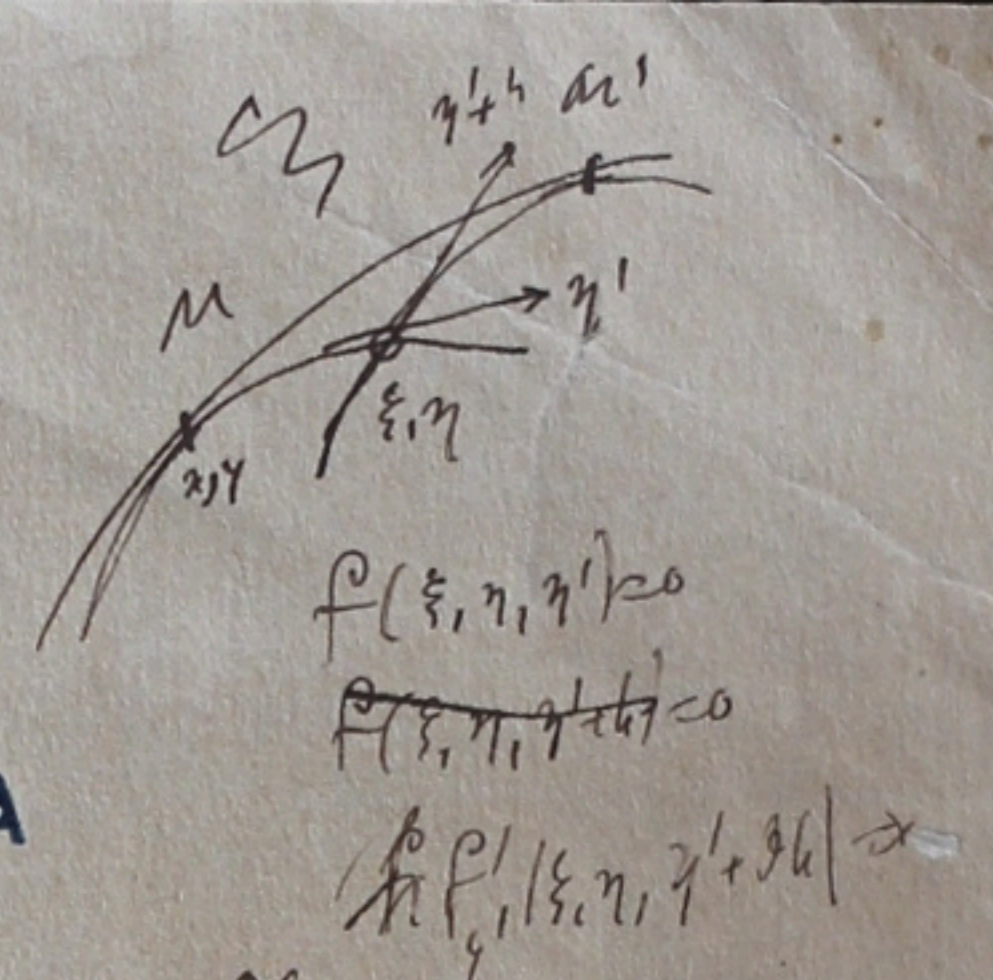 η'+h
M
η'
ξ,η
x,y
f(ξ, η, η')=0
f(ξ, η, η'+h)=0
f'y'(ξ, η, η'+ϑh)
A